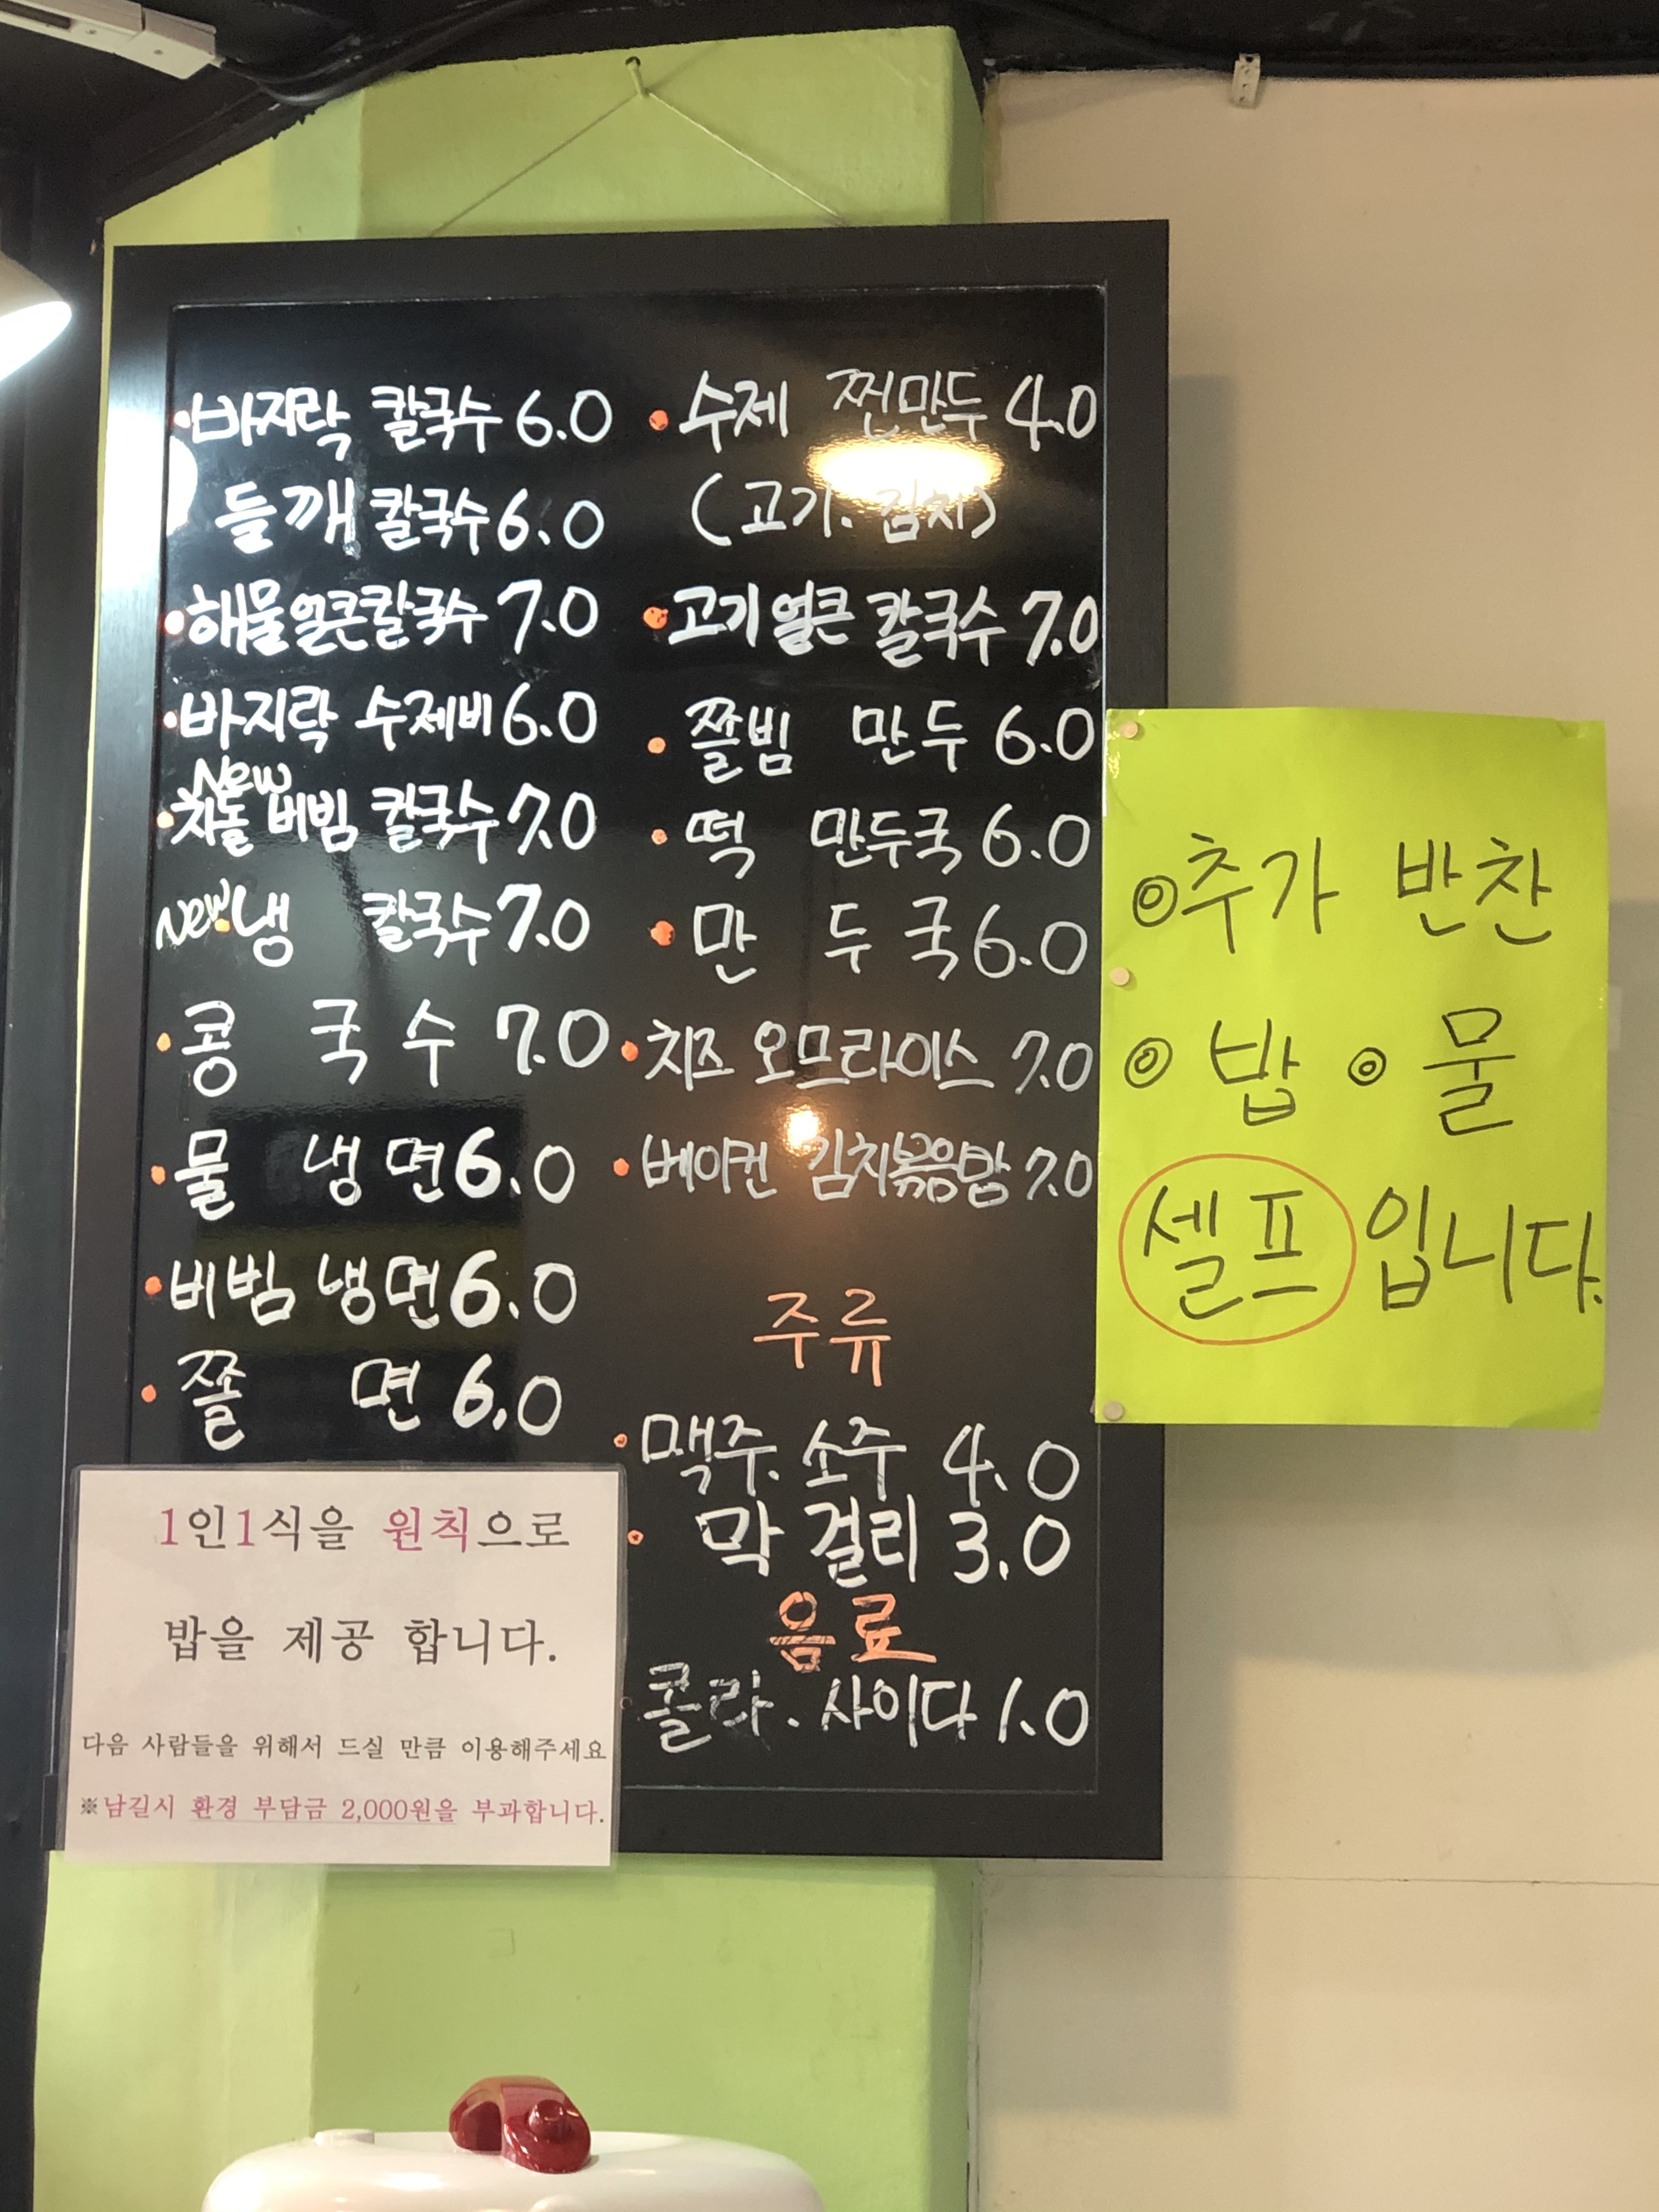 바지락 칼국수 6.0
들깨 칼국수 6.0
해물얼큰칼국수 7.0
바지락 수제비 6.0
New
차돌 비빔 칼국수 7.0
New 냉 칼국수 7.0
콩 국수 7.0
물 냉면 6.0
비빔 냉면 6.0
쫄 면 6.0
수제 찐만두 4.0
(고기. 김치)
고기얼큰 칼국수 7.0
쫄빔 만두 6.0
떡 만두국 6.0
만 두 국 6.0
치즈 오므라이스 7.0
베이컨 김치볶음밥 7.0
주류
맥주. 소주 4.0
막걸리 3.0
음료
콜라. 사이다 1.0
1인1식을 원칙으로
밥을 제공 합니다.
다음 사람들을 위해서 드실 만큼 이용해주세요
※남길시 환경 부담금 2,000원을 부과합니다.
◎추가 반찬
◎ 밥 ◎ 물
셀프 입니다.